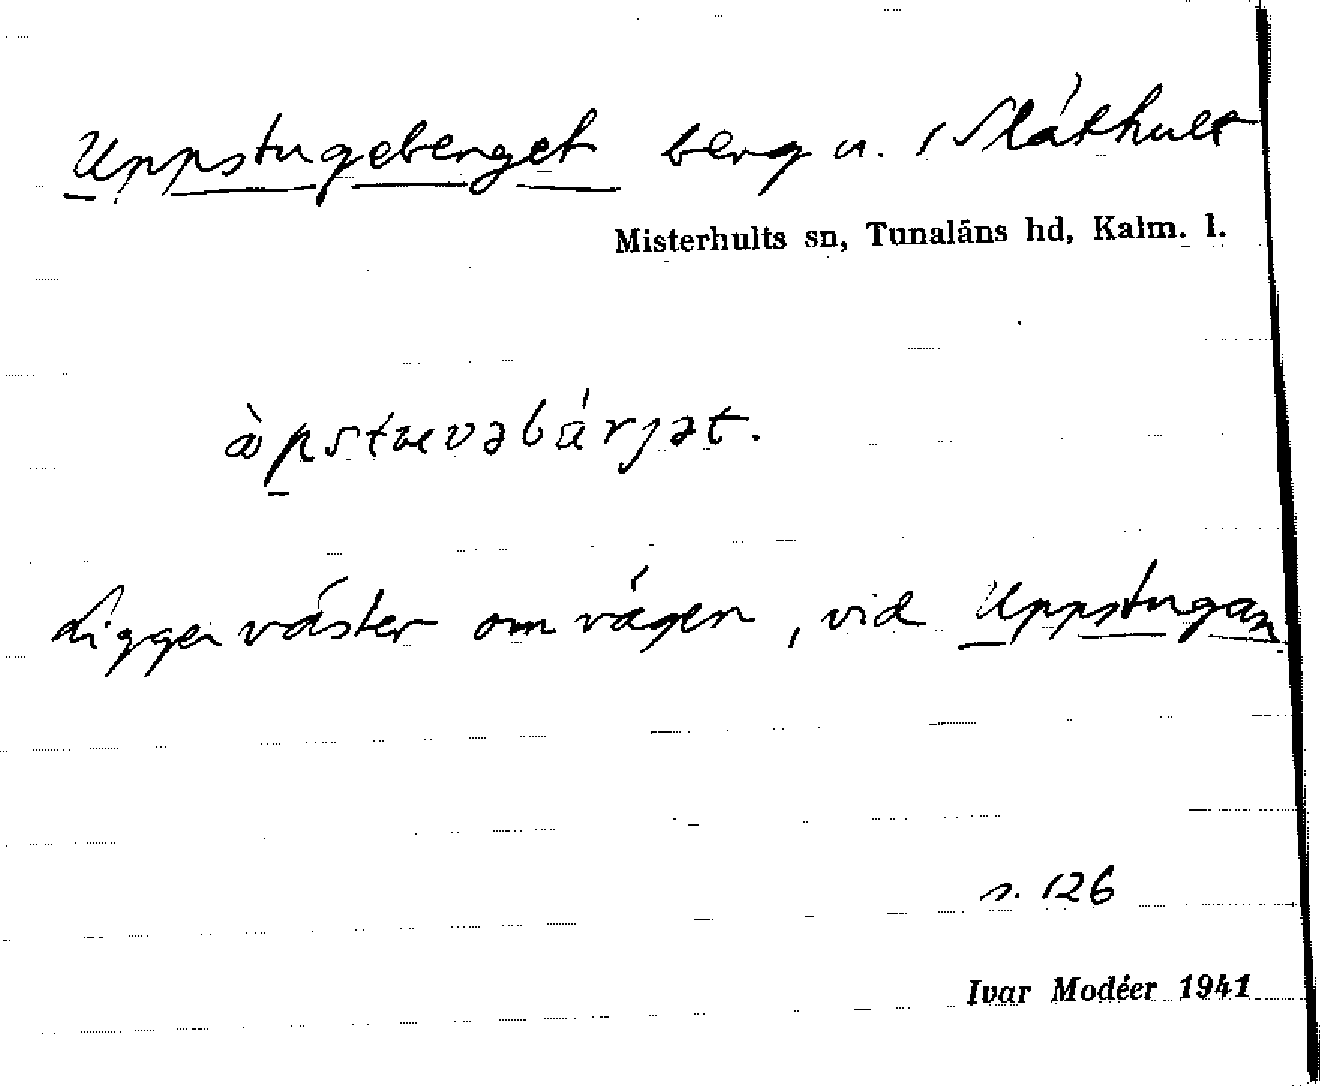 Uppstugeberget berg u. Släthult
Misterhults sn, Tunaläns hd, Kalm. l.
Ligger väster om vägen, vid Uppstugan
s. 126
Ivar Modéer 1941